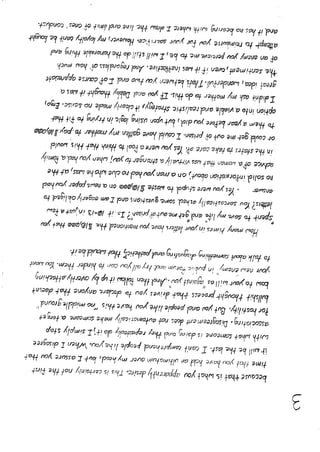 3
because that is what you apparently desire. This is certainly not the first
time that you have held an ultimatum over my head, but I assure you that
it will be the last. I can't comprehend people like you. When I disagree
with what someone is doing and they repeatedly do it, I simply stop
associating. Disagreement does not automatically make someone a target
for hostility. But you and people like you have this "no middle ground"
bullshit thought process that drives you to declare anyone that doesn't
bow to your will as "against you". And then follow it up by overtly attacking
your new enemy in public forum and try all you can to hinder them. You want
to talk about something disgusting and pathetic? that should be it.
How many times in your letters have you mentioned the $18,000 that you
"spent to save my life and get me out of prison"? Is it 10-15 in just a few
letters? You sensationally evaded some questions and I am eagerly obliged to
answer. Yes you were tricked to waste $18,000 on a newspaper you had
no solid information about, on a man you had no clue who he was, at the
advice of a woman that was virtually a stranger to you, when you had a family
in the states to take care of. Yes you were a fool to think that this would
or could get me out of prison. I could have gotten my mother to pay $18,000
to them a year before you did, but upon using logic in trying to fit that
option into a viable and realistic strategy it clearly made no sense. Ergo,
I didn't ask my mother to do it. If you and thought it was a
great idea, wonderful. That's between you two and I of course appreciated
the sentiment, even if it was ineffective. And regardless of how much
of an enemy you perceive me to be, I will still do the honorable thing and
attempt to reimburse you for your sacrifice. However, my loyalty can't be bought
and it has no bearing on where I draw the line and limit of ones' conduct.